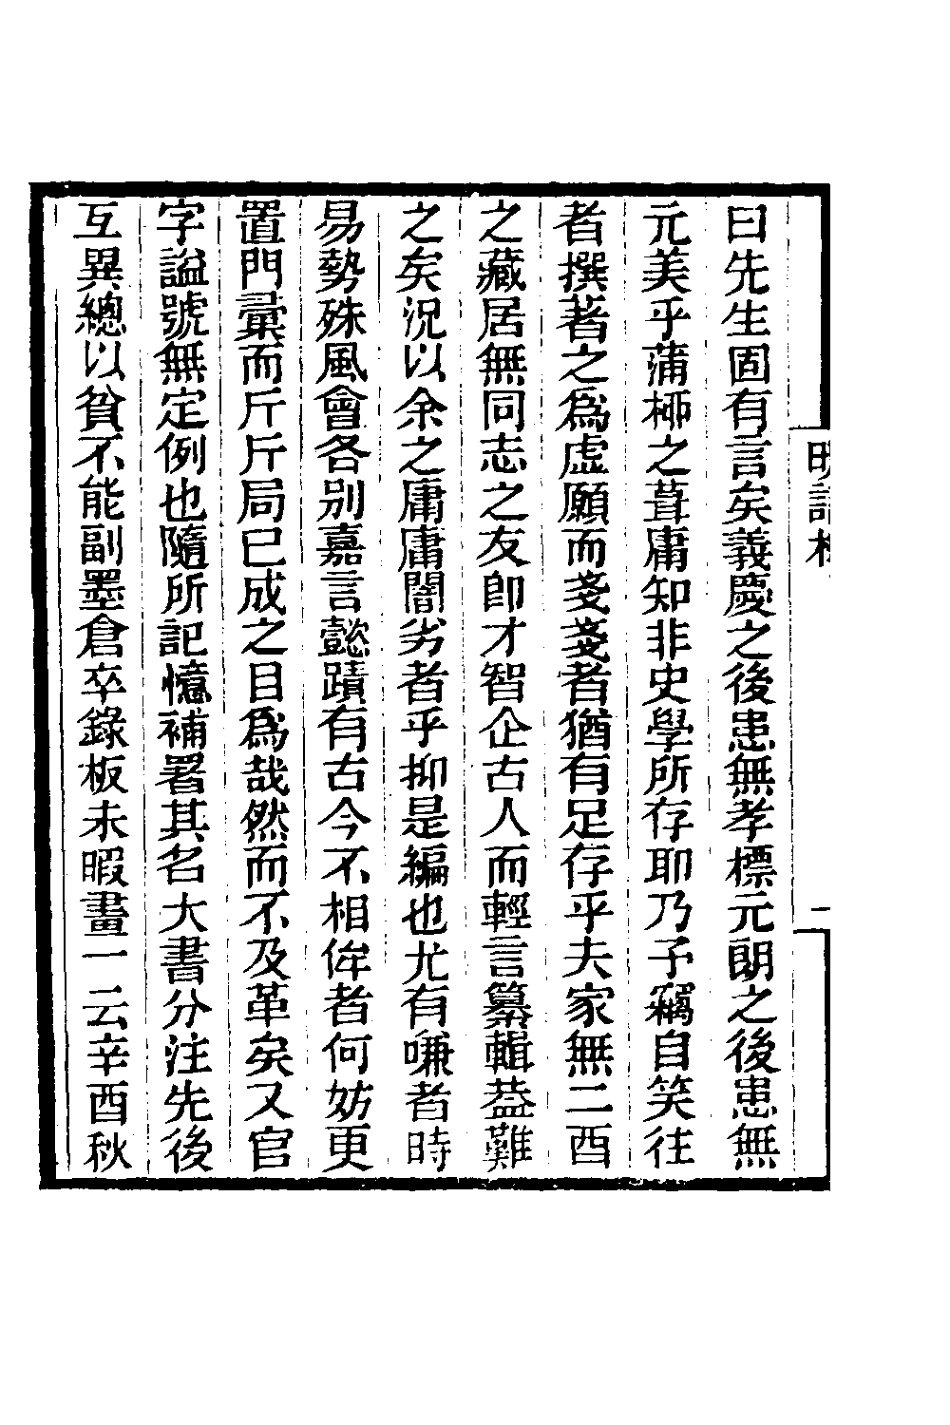 明語林
曰先生固有言矣義慶之後患無孝標元朗之後患無
元美乎蒲桺之葺庸知非史學所存耶乃予竊自笑往
者撰著之爲虛願而戔戔者猶有足存乎夫家無二酉
之藏居無同志之友卽才智企古人而輕言纂輯葢難
之矣況以余之庸庸闇劣者乎抑是編也尤有嗛者時
易勢殊風會各別嘉言懿蹟有古今不相侔者何妨更
置門彙而斤斤局已成之目爲哉然而不及革矣又官
字謚號無定例也隨所記憶補署其名大書分注先後
互異總以貧不能副墨倉卒錄板未暇畫一云辛酉秋